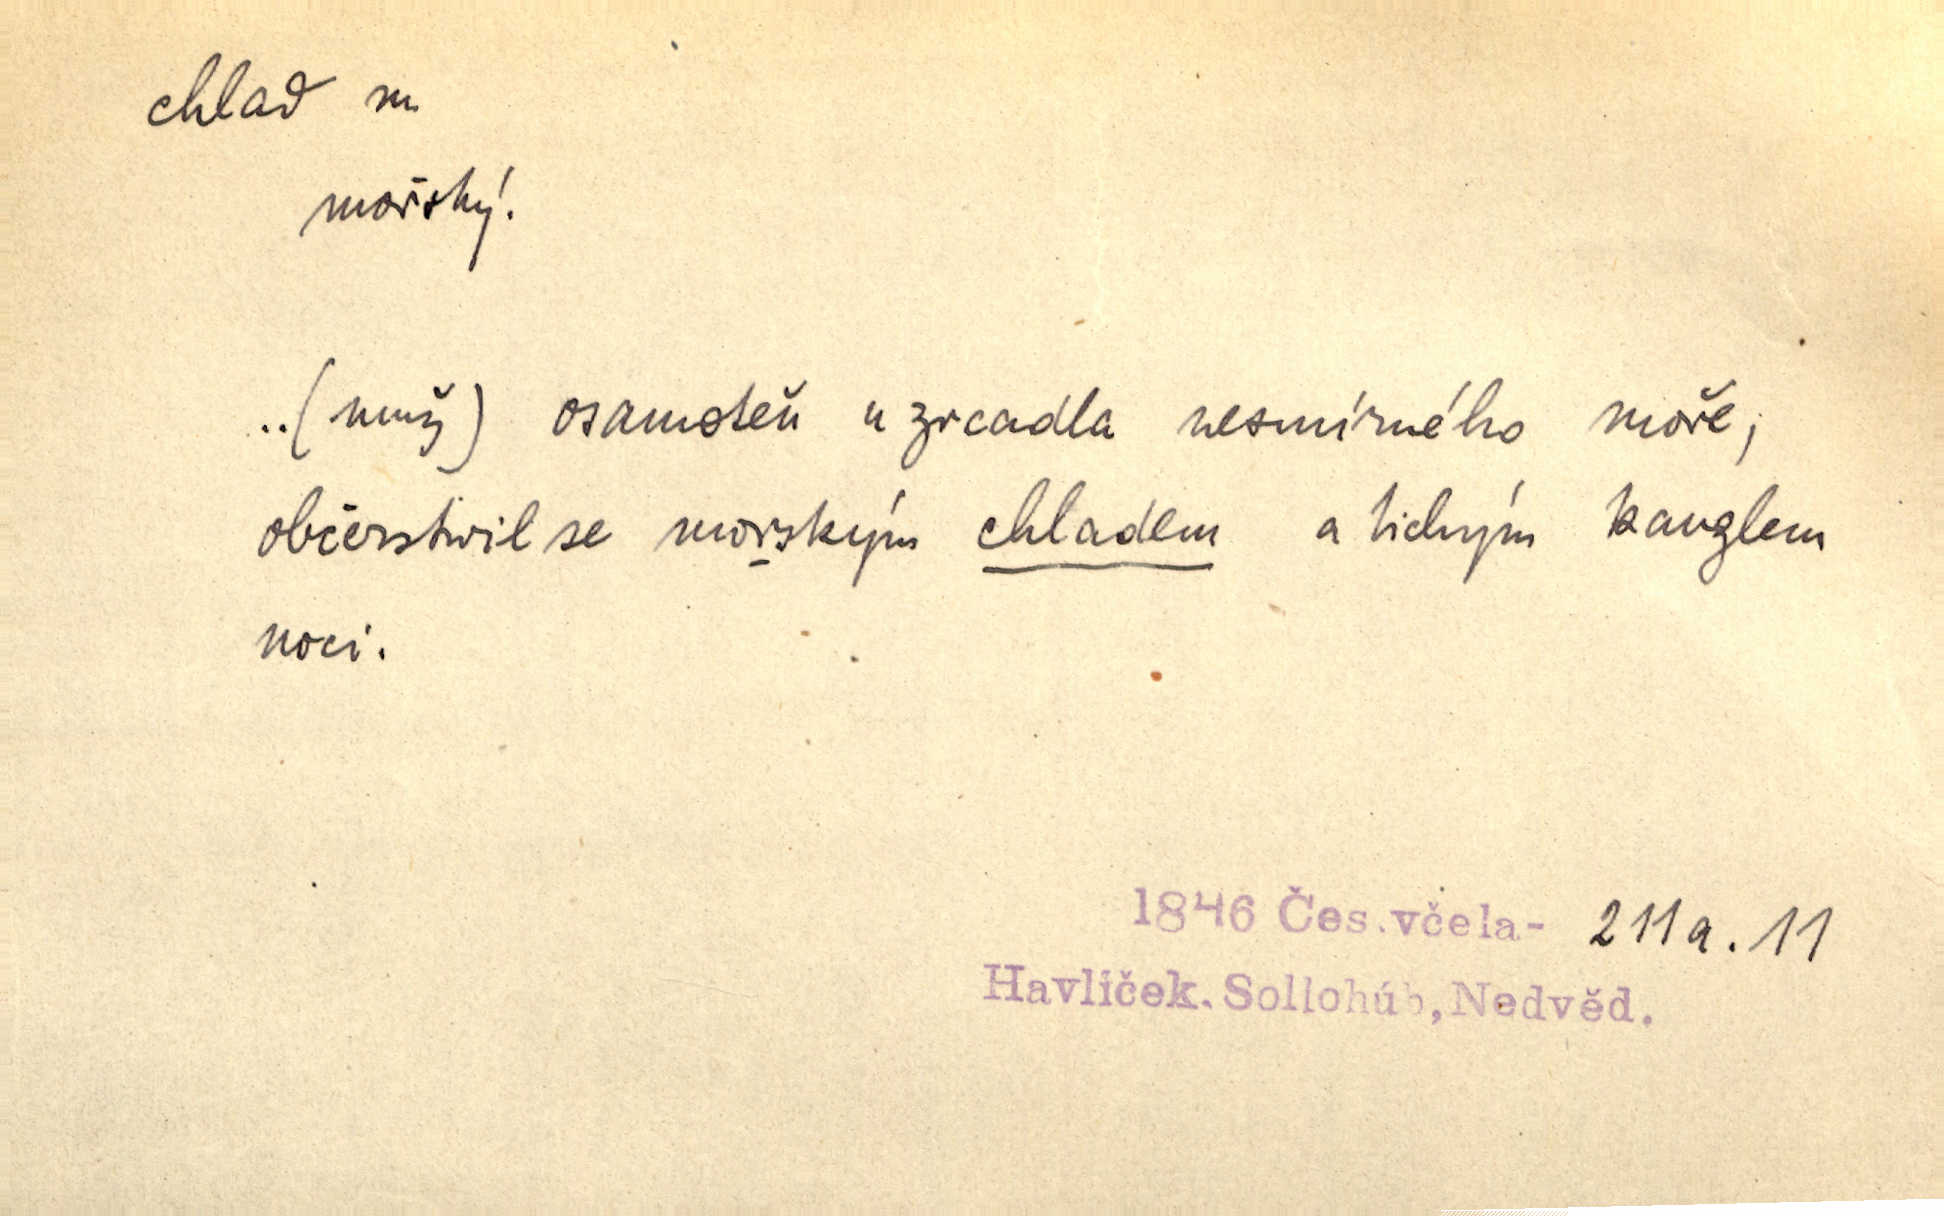 chlad m
mořský.
..(muž) osamoteň u zrcadla nesmírného moře,
občerstwil se morským chladem a tichým kauzlem
noci.
1846 Čes.včela- 211a.11
Havlíček. Sollohúb, Nedvěd.